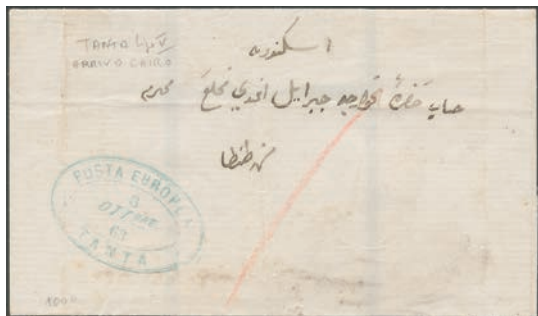 TANTA
ARRIVO CAIRO
اسكندريه
جناب حضرة الخواجه جبرايل افندي مخلع محترم
من طنطا
POSTA EUROPEA
8
OTTBRE
63
TANTA
1000